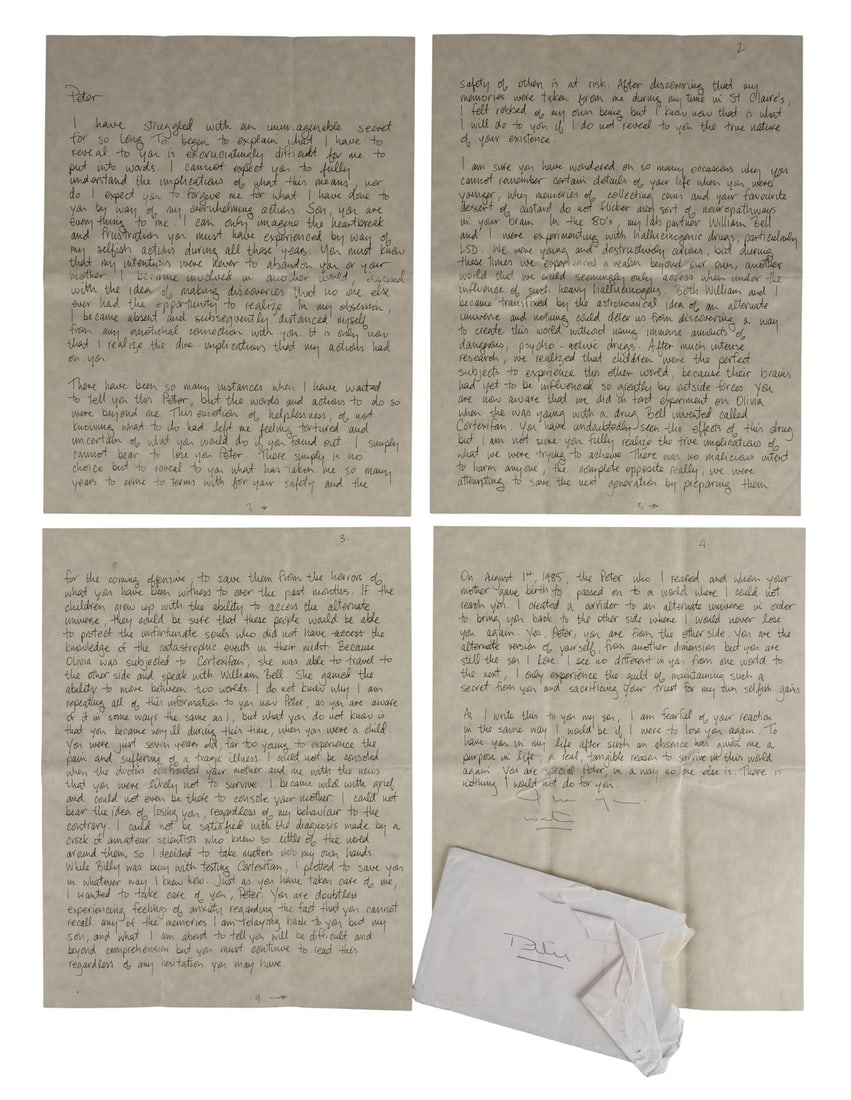 Peter
I have struggled with an unimaginable secret
for so long. To begin to explain what I have to
reveal to you is excruciatingly difficult for me to
put into words. I cannot expect you to fully
understand the implications of what this means, nor
do I expect you to forgive me for what I have done to
you by way of my overwhelming actions. Son, you are
everything to me. I can only imagine the heartbreak
and frustration you must have experienced by way of
my selfish actions during all those years. You must know
that my intentions were never to abandon you or your
mother. I became involved in another world, obsessed
with the idea of making discoveries that no one else
ever had the opportunity to realize. In my obsession,
I became absent and subsequently distanced myself
from any emotional connection with you. It is only now
that I realize the dire implications that my actions had
on you.
There have been so many instances when I have wanted
to tell you this Peter, but the words and actions to do so
were beyond me. This emotion of helplessness, of not
knowing what to do had left me feeling tortured and
uncertain of what you would do if you found out. I simply
cannot bear to lose you Peter. There simply is no
choice but to reveal to you what has taken me so many
years to come to terms with for your safety and the
2 →
2
safety of others is at risk. After discovering that my
memories were taken from me during my time in St Claire's,
I felt robbed of my own being but I know now that is what
I will do to you if I do not reveal to you the true nature
of your existence.
I am sure you have wondered on so many occasions why you
cannot remember certain details of your life when you were
younger, why memories of collecting coins and your favourite
dessert of custard do not flicker any sort of neuropathways
in your brain. In the 80's, my lab partner William Bell
and I were experimenting with hallucinogenic drugs, particularly
LSD. We were young and destructively curious, but during
these times we experienced a realm beyond our own, another
world that we could seemingly only access when under the
influence of such heavy hallucinogens. Both William and I
became transfixed by the astronomical idea of an alternate
universe and nothing could deter us from discovering a way
to create this world without using immense amounts of
dangerous, psycho-active drugs. After much intense
research, we realized that children were the perfect
subjects to experience this other world, because their brains
had yet to be influenced so greatly by outside forces. You
are now aware that we did in fact experiment on Olivia
when she was young with a drug Bell invented called
Cortexifan. You have undoubtedly seen the effects of this drug
but I am not sure you fully realize the true implications of
what we were trying to achieve. There was no malicious intent
to harm anyone, the complete opposite really, we were
attempting to save the next generation by preparing them
3 →
3.
for the coming offensive, to save them from the horrors of
what you have been witness to over the past months. If the
children grew up with the ability to access the alternate
universe, they could be sure that these people would be able
to protect the unfortunate souls who did not have access the
knowledge of the catastrophic events in their midst. Because
Olivia was subjected to Cortexifan, she was able to travel to
the other side and speak with William Bell. She gained the
ability to move between two worlds. I do not know why I am
repeating all of this information to you now Peter, as you are aware
of it in some ways the same as I, but what you do not know is
that you became very ill during this time, when you were a child.
You were just seven years old, far too young to experience the
pain and suffering of a tragic illness. I could not be consoled
when the doctors confronted your mother and me with the news
that you were likely not to survive. I became wild with grief
and could not even be there to console your mother. I could not
bear the idea of losing you, regardless of my behaviour to the
contrary. I could not be satisfied with the diagnosis made by a
crock of amateur scientists who knew so little of the world
around them so I decided to take matters into my own hands.
While Billy was busy with testing Cortexifan, I plotted to save you
in whatever way I knew how. Just as you have taken care of me,
I wanted to take care of you, Peter. You are doubtless
experiencing feelings of anxiety regarding the fact that you cannot
recall any of the memories I am relaying back to you but my
son, and what I am about to tell you will be difficult and
beyond comprehension but you must continue to read this
regardless of any hesitation you may have.
4 →
4.
On August 1st, 1985, the Peter who I reared and whom your
mother gave birth to passed on to a world where I could not
reach you. I created a corridor to an alternate universe in order
to bring you back to the other side where I would never lose
you again. Yes, Peter, you are from the other side. You are the
alternate version of yourself, from another dimension but you are
still the son I love. I see no different in you from one world to
the next, I only experience the guilt of maintaining such a
secret from you and sacrificing your trust for my own selfish gains
As I write this to you my son, I am fearful of your reaction
in the same way I would be if I were to lose you again. To
have you in my life after such an absence has given me a
purpose in life, a real, tangible reason to survive in this world
again. You are special Peter, in a way no one else is. There is
nothing I would not do for you.
Peter